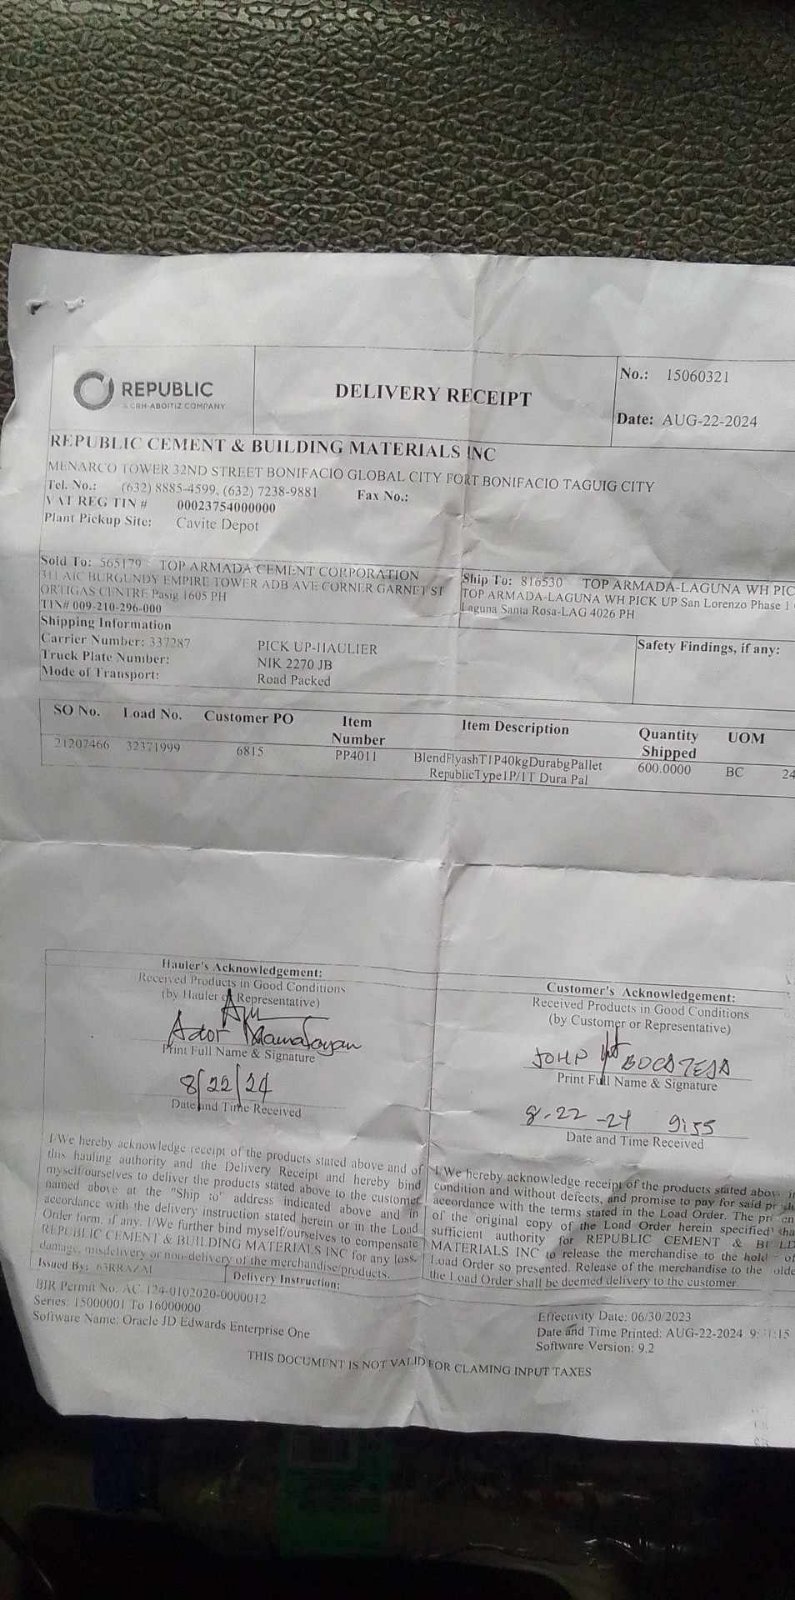 REPUBLIC
A CRH-ABOITIZ COMPANY
DELIVERY RECEIPT
No.: 15060321
Date: AUG-22-2024
REPUBLIC CEMENT & BUILDING MATERIALS INC
MENARCO TOWER 32ND STREET BONIFACIO GLOBAL CITY FORT BONIFACIO TAGUIG CITY
Tel. No.: (632) 8885-4599, (632) 7238-9881 Fax No.:
VAT REG TIN # 00023754000000
Plant Pickup Site: Cavite Depot
Sold To: 565179 TOP ARMADA CEMENT CORPORATION
311 AIC BURGUNDY EMPIRE TOWER ADB AVE CORNER GARNET ST
ORTIGAS CENTRE Pasig 1605 PH
TIN# 009-210-296-000
Ship To: 816530 TOP ARMADA-LAGUNA WH PIC
TOP ARMADA-LAGUNA WH PICK UP San Lorenzo Phase 1
Laguna Santa Rosa-LAG 4026 PH
Shipping Information
Carrier Number: 337287 PICK UP-HAULIER
Truck Plate Number: NIK 2270 JB
Mode of Transport: Road Packed
Safety Findings, if any:
SO No. Load No. Customer PO Item Number Item Description Quantity Shipped UOM
21207466 32371999 6815 PP4011 BlendFlyashT1P40kgDurabgPallet 600.0000 BC 24
RepublicType1P/1T Dura Pal
Hauler's Acknowledgement:
Received Products in Good Conditions
(by Hauler or Representative)
Ador
Print Full Name & Signature
8/22/24
Date and Time Received
Customer's Acknowledgement:
Received Products in Good Conditions
(by Customer or Representative)
JOHP BOCATEJA
Print Full Name & Signature
8-22-24 9:55
Date and Time Received
I/We hereby acknowledge receipt of the products stated above and of
this hauling authority and the Delivery Receipt and hereby bind
myself/ourselves to deliver the products stated above to the customer
named above at the "Ship to" address indicated above and in
accordance with the delivery instruction stated herein or in the Load
Order form, if any. I/We further bind myself/ourselves to compensate
REPUBLIC CEMENT & BUILDING MATERIALS INC for any loss,
damage, misdelivery or non-delivery of the merchandise/products.
I/We hereby acknowledge receipt of the products stated above in
condition and without defects, and promise to pay for said
accordance with the terms stated in the Load Order. The
of the original copy of the Load Order herein specified
sufficient authority for REPUBLIC CEMENT &
MATERIALS INC to release the merchandise to the of
Load Order so presented. Release of the merchandise to the
the Load Order shall be deemed delivery to the customer.
Issued By: 63RRAZAL
Delivery Instruction:
BIR Permit No. AC-124-0102020-0000012
Series: 15000001 To 16000000
Software Name: Oracle JD Edwards Enterprise One
Effectivity Date: 06/30/2023
Date and Time Printed: AUG-22-2024
Software Version: 9.2
THIS DOCUMENT IS NOT VALID FOR CLAMING INPUT TAXES